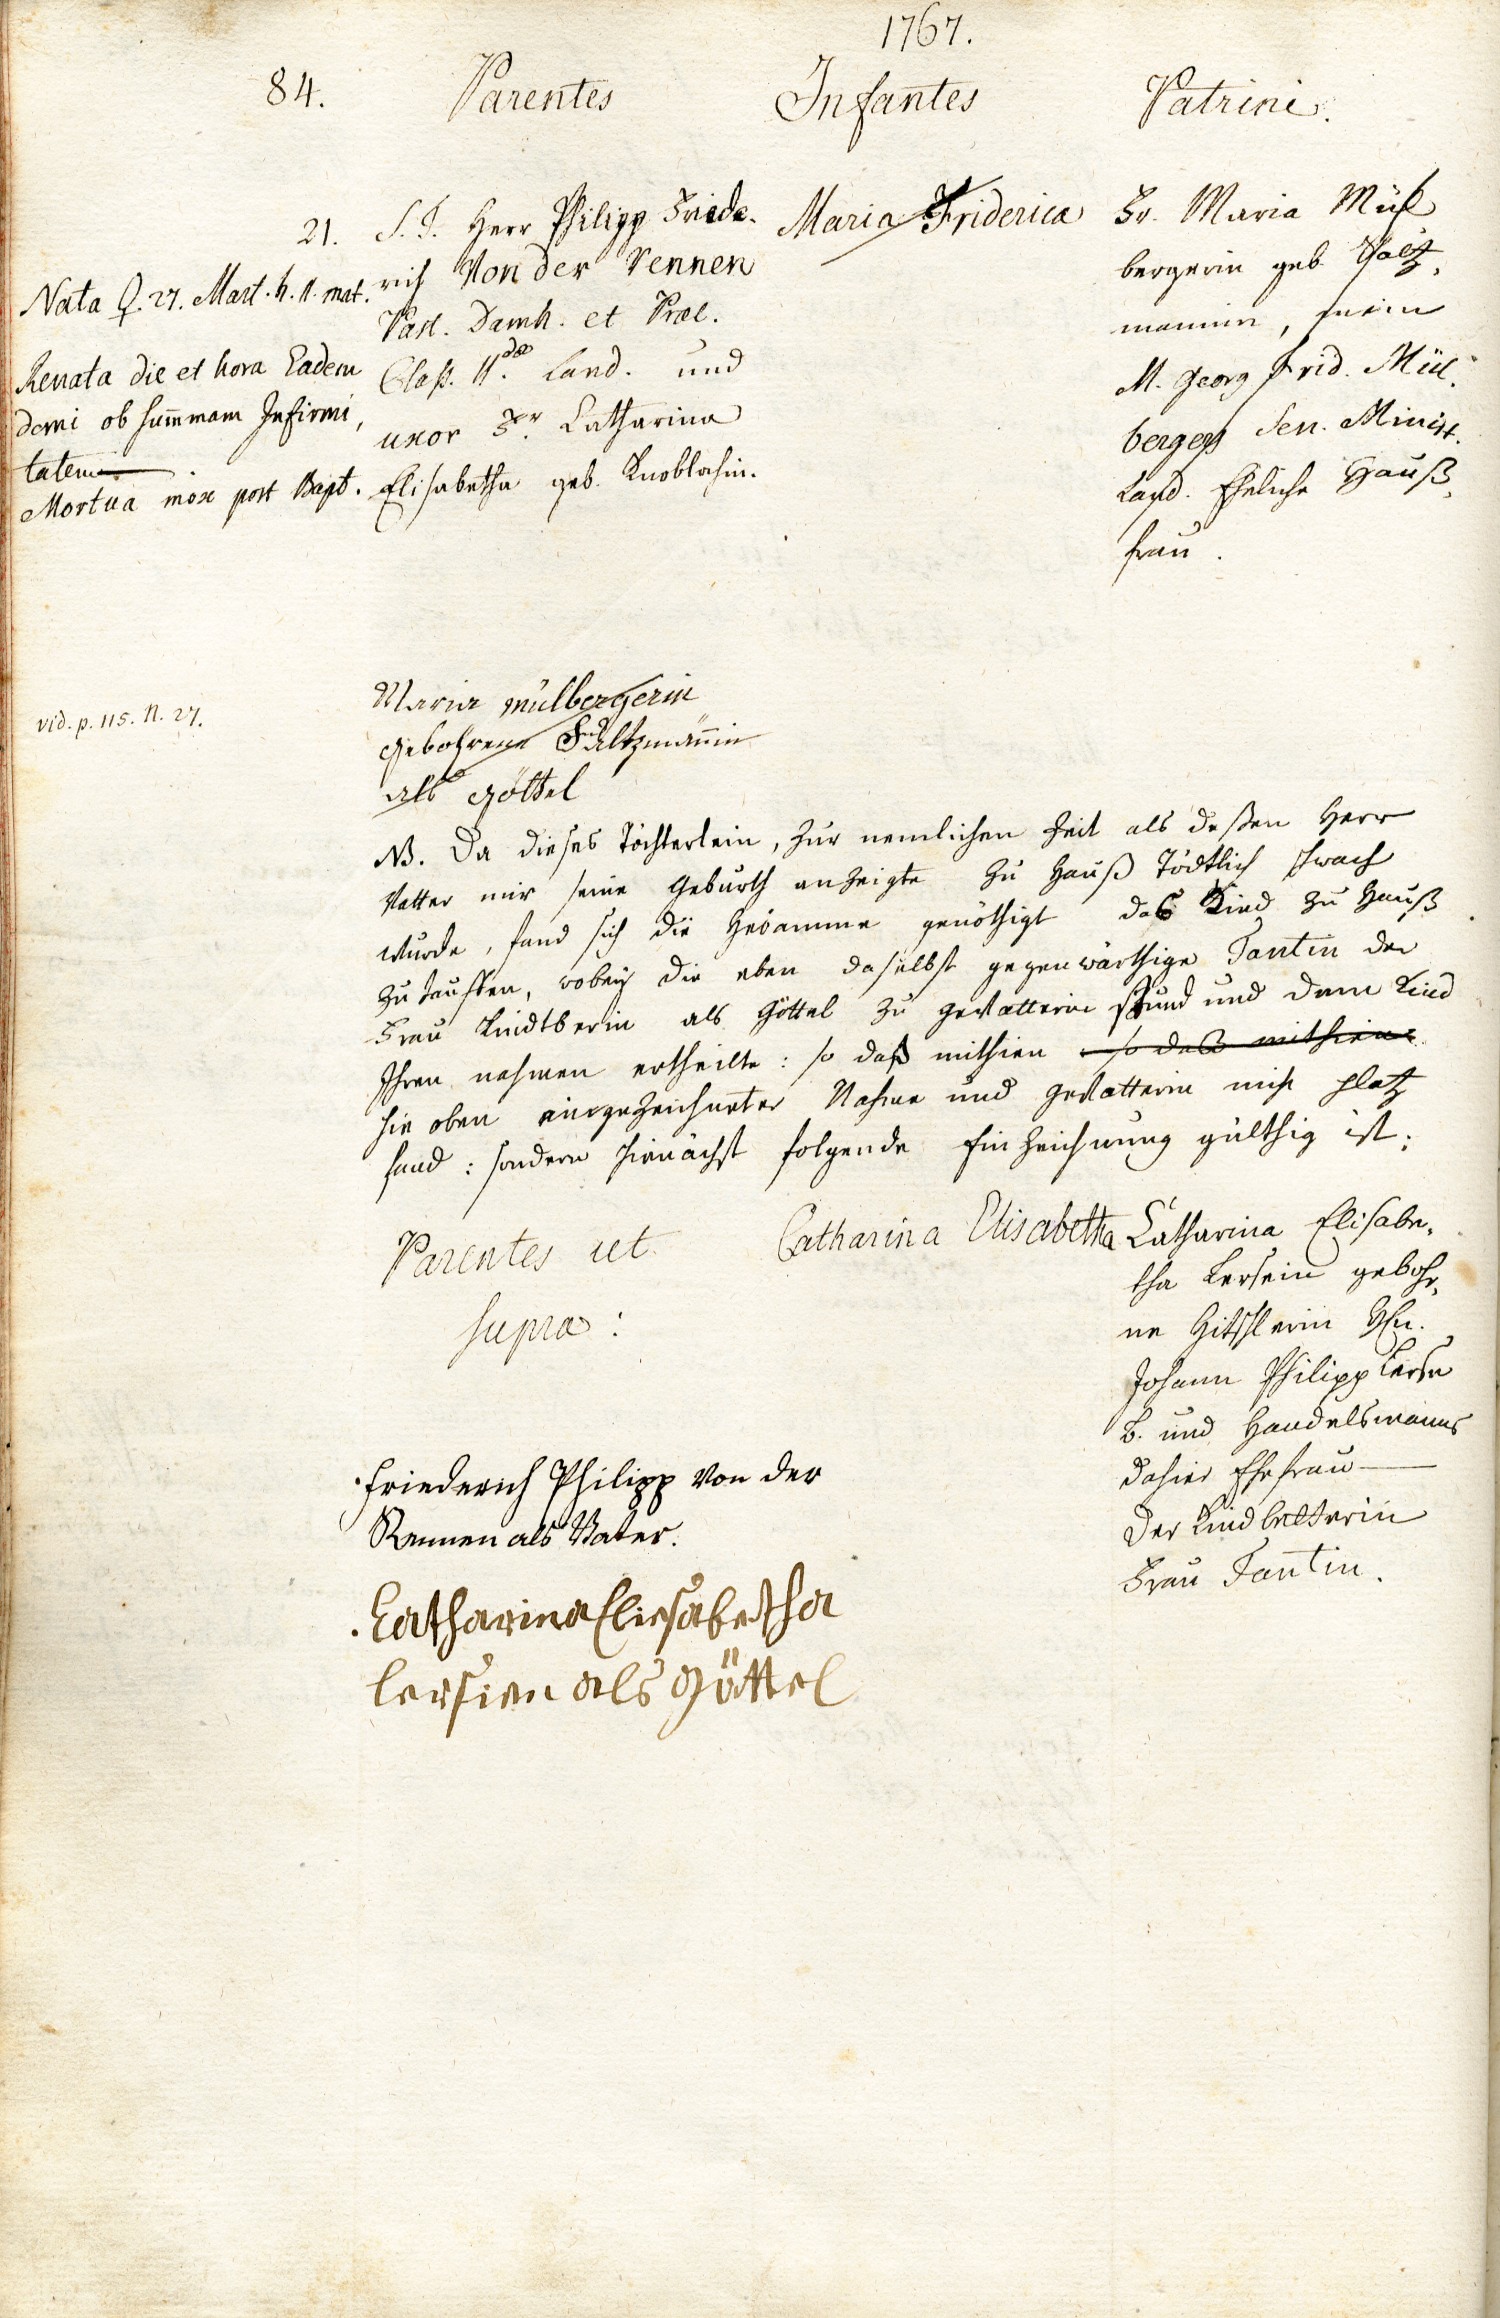 1767.
84. Parentes Infantes Patrini.
21.
Nata ♀. 27. Mart. h. 11. mat.
Renata die et hora Eadem
domi ob summam Infirmi,
tatem
Mortua mox post Bapt.
S. T. Herr Philipp Friede-
rich Von der Rennen
Past. Damh. et Præl.
Class. II.dæ Land. und
uxor Fr. Catharina
Elisabetha geb. Knoblochin.
Maria Friderica
Fr. Maria Mül
bergerin geb. Saltz,
mannin, mein
M. Georg Frid. Mül,
bergers Sen. Minist.
Land. Eheliche Hauß,
frau.
vid. p. 115. N. 27.
Maria mülbergerin
gebohrene Saltzmännin
als göttel
NB. Da dieses Töchterlein, zur nemlichen Zeit als deßen Herr
Vatter mir seine Geburth anzeigte zu Hauß Tödtlich schwach
wurde, fand sich die Hebamme genöthigt das Kind zu Hauß
zu tauffen, wobey die eben daselbst gegenwärthige Tantin der
Frau Kindtberin als Göttel zu gevatterin stund und dem Kind
Ihren nahmen ertheilte: so daß mithien so daß mithien
hie oben eingezeichneter Nahme und gevatterin nicht platz
fand: sondern hienächst folgende Einzeichnung gülthig ist:
Parentes ut
supra:
Catharina Elisabetha
Catharina Elisabe,
tha Lersein gebohr,
ne Hitschlerin Hn.
Johann Philipp Lerse
B. und Handelsmanns
dahier Ehefrau
der Kindbetterin
Frau Tantin.
Friederich Philipp Von der
Rennen als Vater.
Catharina Eliesabetha
Lersien als Göttel